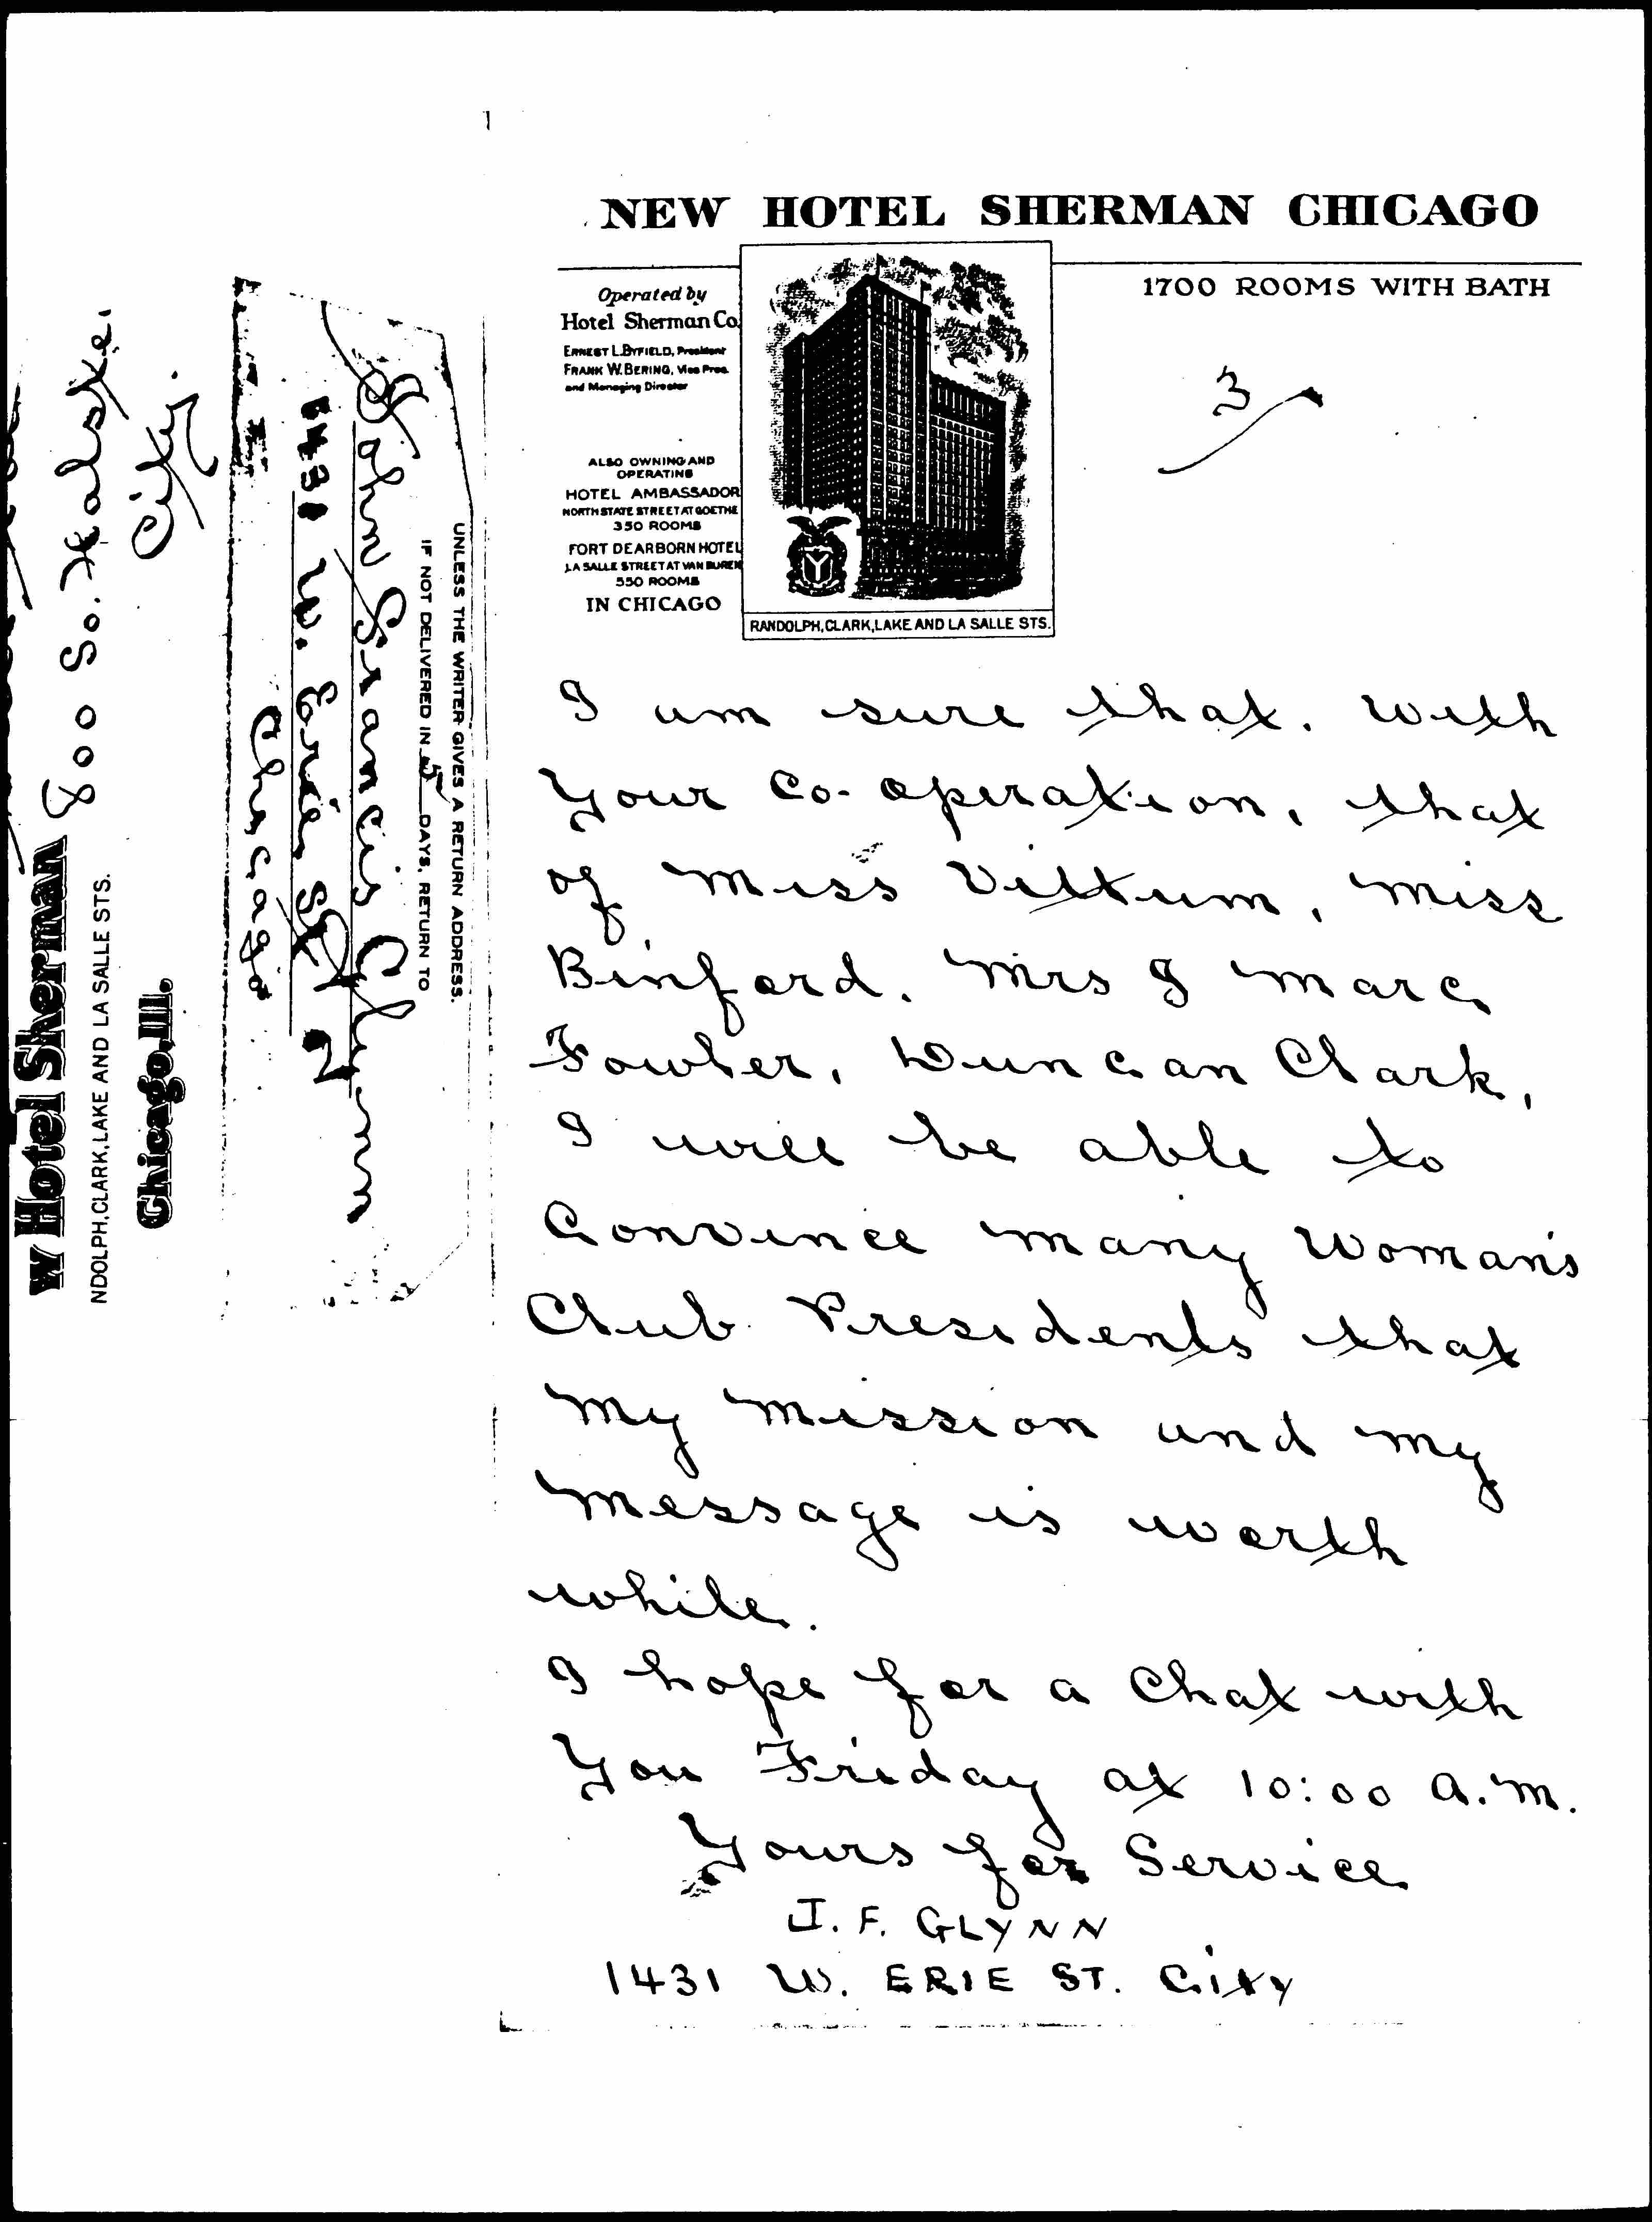 NEW HOTEL SHERMAN CHICAGO
1700 ROOMS WITH BATH
Operated by
Hotel Sherman Co.
ERNEST L. BYFIELD, President
FRANK W. BERING, Vice Pres.
and Managing Director
ALSO OWNING AND
OPERATING
HOTEL AMBASSADOR
NORTH STATE STREET AT GOETHE
350 ROOMS
FORT DEARBORN HOTEL
LA SALLE STREET AT VAN BUREN
550 ROOMS
IN CHICAGO
RANDOLPH, CLARK, LAKE AND LA SALLE STS.
3
I am sure that. with
your co-operation, that
of Miss Vittum, Miss
Binford, Mrs J Marc
Fowler, Duncan Clark,
I will be able to
Convince many Woman's
Club Presidents that
my mission and my
message is worth
while.
I hope for a chat with
you Friday at 10:00 A.M.
Yours for Service
J. F. GLYNN
1431 W. ERIE ST. City
UNLESS THE WRITER GIVES A RETURN ADDRESS.
IF NOT DELIVERED IN 5 DAYS, RETURN TO
John Francis Glynn
1431 W. Erie St
Chicago
800 So. Halste.
City.
w Hotel Sherman
NDOLPH, CLARK, LAKE AND LA SALLE STS.
Chicago, Ill.